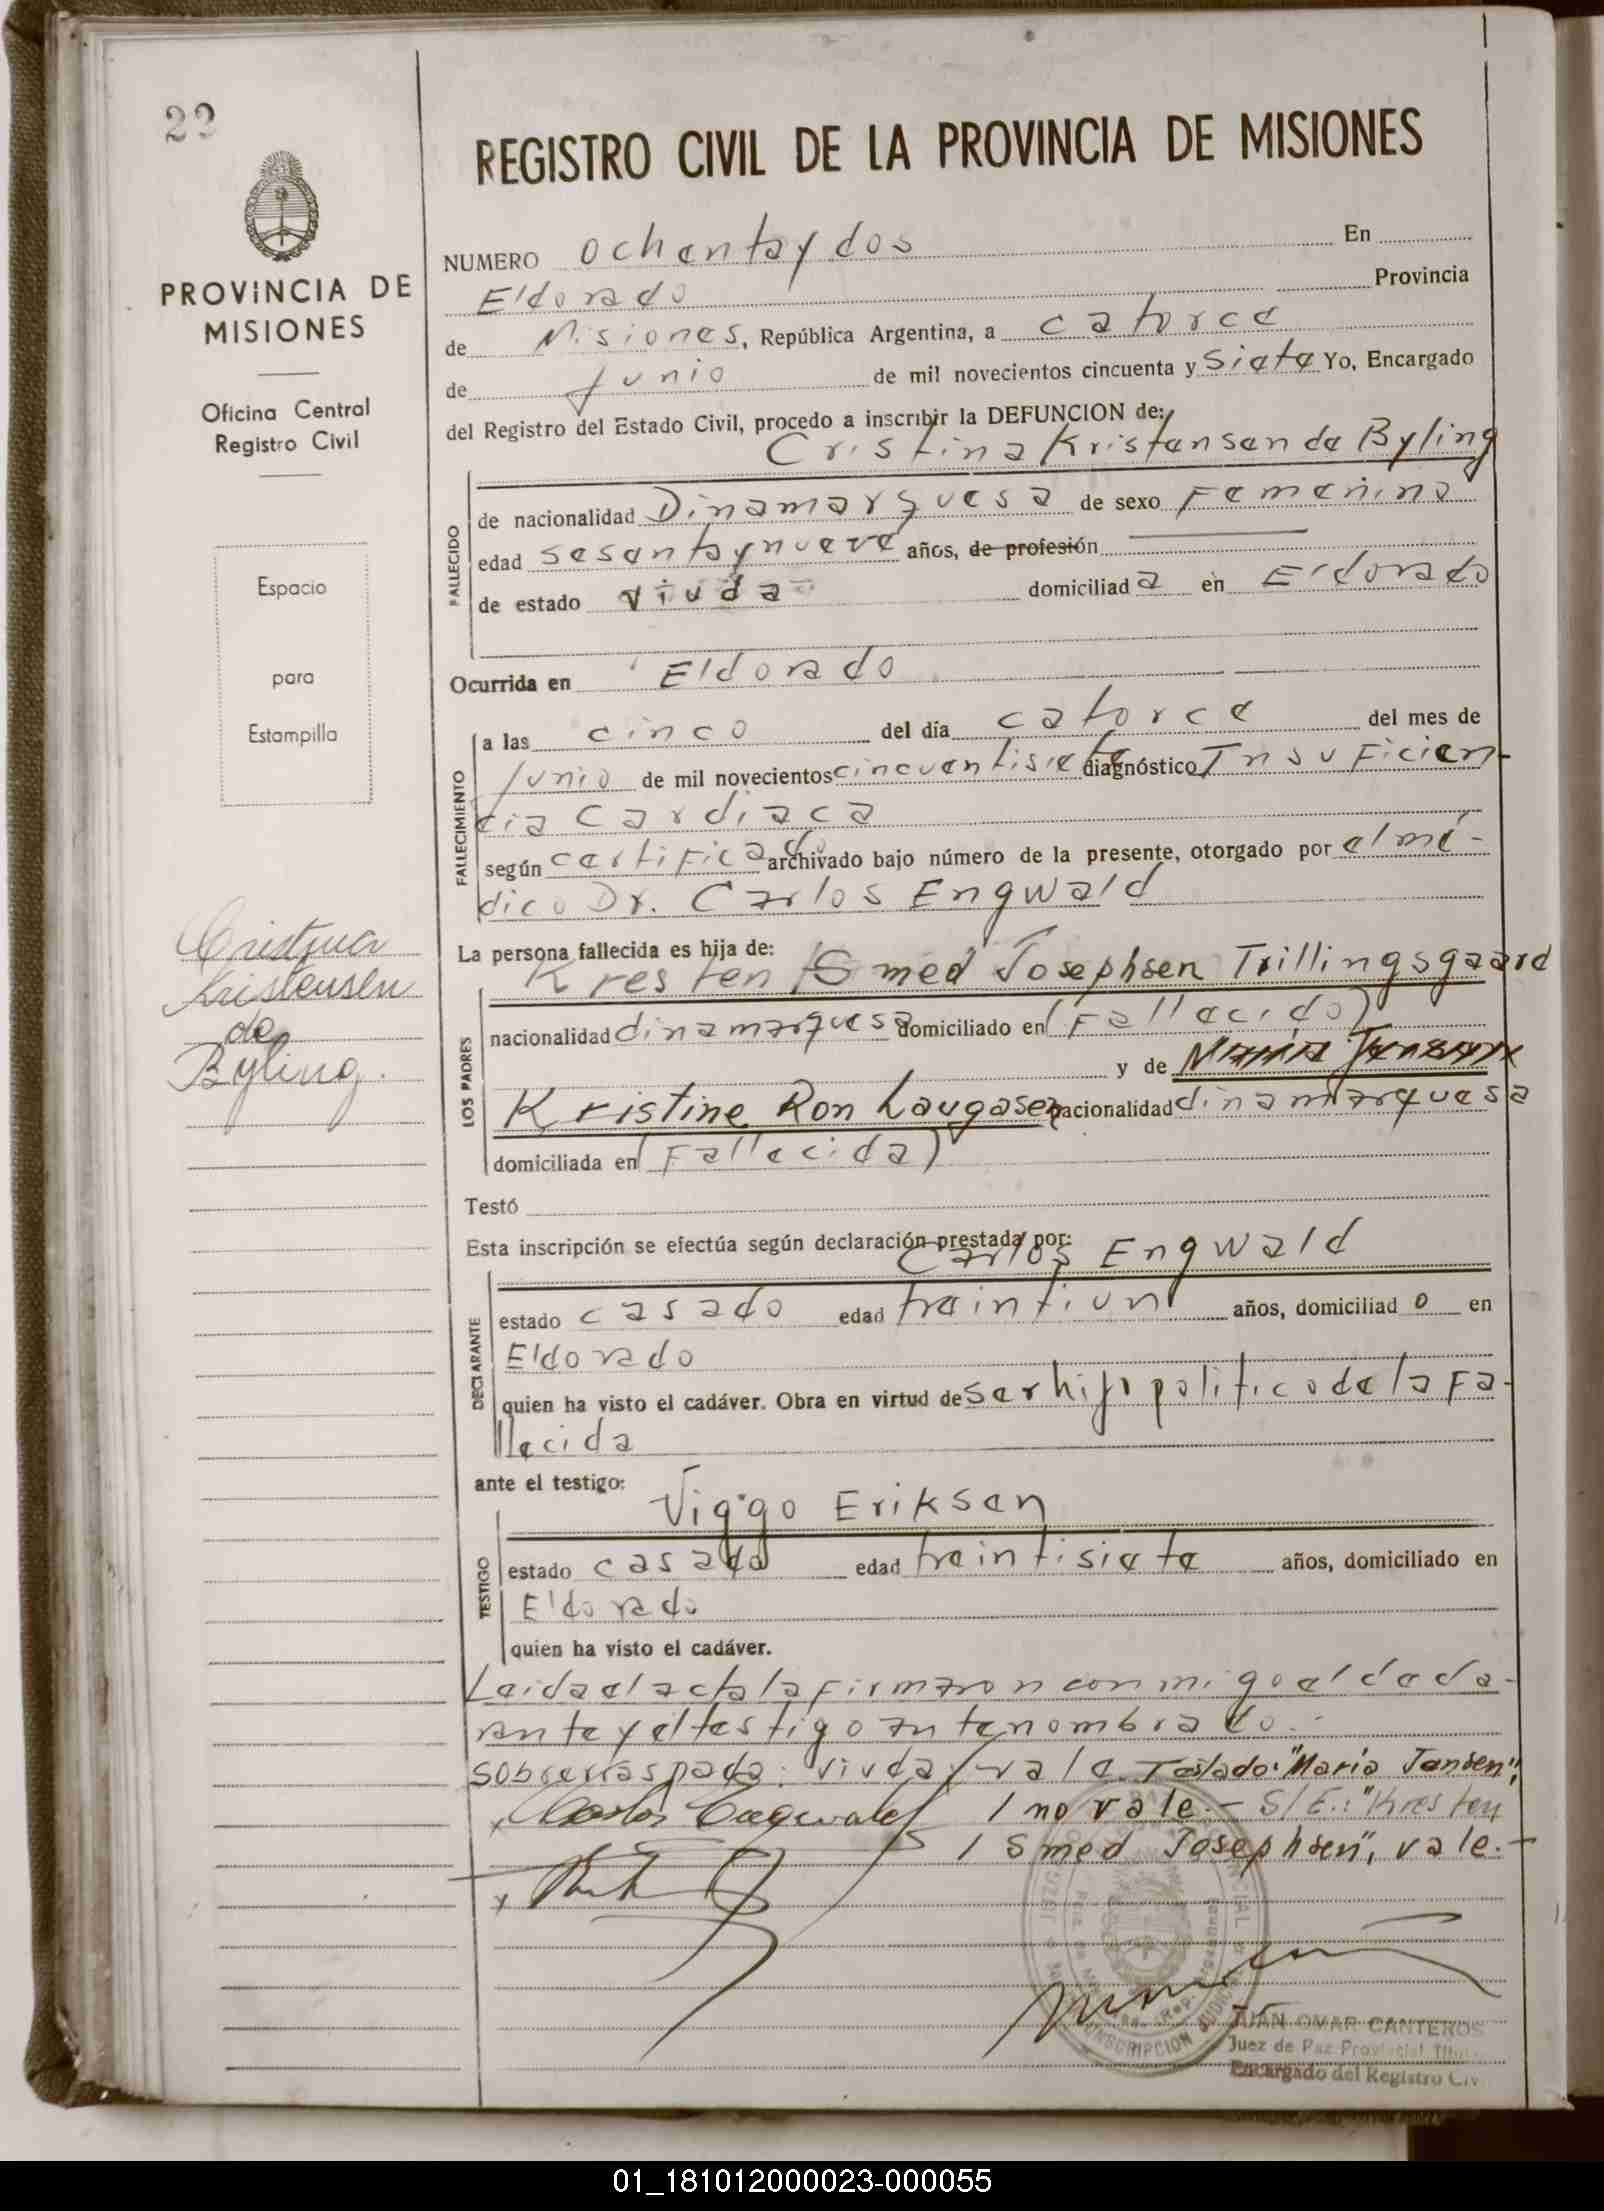 22
PROVINCIA DE
MISIONES
Oficina Central
Registro Civil
Espacio
para
Estampilla
Cristina
Kristensen
de
Byling.
REGISTRO CIVIL DE LA PROVINCIA DE MISIONES
NUMERO ochentaydos En
Eldorado Provincia
de Misiones, República Argentina, a catorce
de junio de mil novecientos cincuenta y siete Yo, Encargado
del Registro del Estado Civil, procedo a inscribir la DEFUNCION de:
Cristina Kristensen de Byling
FALLECIDO
de nacionalidad Dinamarquesa de sexo Femenino
edad sesentaynueve años, de profesión
de estado viuda domiciliad a en Eldorado
Ocurrida en Eldorado
FALLECIMIENTO
a las cinco del día catorce del mes de
junio de mil novecientos cincuentisiete diagnóstico Insuficien-
cia cardiaca
según certificado archivado bajo número de la presente, otorgado por el mé-
dico Dr. Carlos Engwald
La persona fallecida es hija de:
Kresten Smed Josephsen Trillingsgaard
LOS PADRES
nacionalidad dinamarquesa domiciliado en (Fallecido)
y de Maria Jansen
Kristine Ron Laugasen nacionalidad dinamarquesa
domiciliada en (Fallecida)
Testó
Esta inscripción se efectúa según declaración prestada por:
Carlos Engwald
DECLARANTE
estado casado edad treintiun años, domiciliad o en
Eldorado
quien ha visto el cadáver. Obra en virtud de ser hijo politico de la fa-
llecida
ante el testigo:
Viggo Eriksen
TESTIGO
estado casado edad treintisiete años, domiciliado en
Eldorado
quien ha visto el cadáver.
Leida el acta la firmaron conmigo el decla-
rante y el testigo antenombrado.-
Sobrerraspado: viuda/vale Testado: "Maria Jansen",
Carlos Engwald / no vale.- S/E.: "Kresten
/ Smed Josephsen", vale.-
JUAN OMAR CANTEROS
Juez de Paz Provincial
Encargado del Registro Civ
01_181012000023-000055